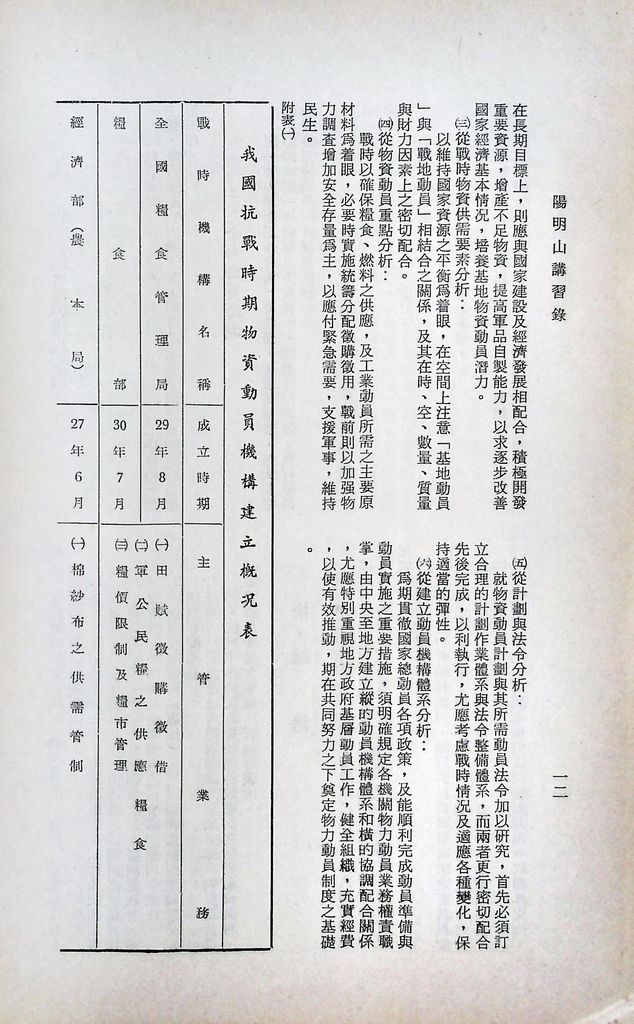 陽明山講習錄
一二
在長期目標上，則應與國家建設及經濟發展相配合，積極開發
重要資源，增產不足物資，提高軍品自製能力，以求逐步改善
國家經濟基本情況，培養基地物資動員潛力。
㈢從戰時物資供需要素分析：
以維持國家資源之平衡爲着眼，在空間上注意「基地動員
」與「戰地動員」相結合之關係，及其在時、空、數量、質量
與財力因素上之密切配合。
㈣從物資動員重點分析：
戰時以確保糧食、燃料之供應，及工業動員所需之主要原
材料爲着眼，必要時實施統籌分配徵購徵用，戰前則以加强物
力調查增加安全存量爲主，以應付緊急需要，支援軍事，維持
民生。
㈤從計劃與法令分析：
就物資動員計劃與其所需動員法令加以研究，首先必須訂
立合理的計劃作業體系與法令整備體系，而兩者更行密切配合
先後完成，以利執行，尤應考慮戰時情況及適應各種變化，保
持適當的彈性。
㈥從建立動員機構體系分析：
爲期貫徹國家總動員各項政策，及能順利完成動員準備與
動員實施之重要措施，須明確規定各機關物力動員業務權責職
掌，由中央至地方建立縱的動員機構體系和橫的協調配合關係
，尤應特別重視地方政府基層動員工作，健全組織，充實經費
，以使有效推動，期在共同努力之下奠定物力動員制度之基礎
。
附表㈠
我國抗戰時期物資動員機構建立概況表
戰時機構名稱 成立時期 主管業務
全國糧食管理局 29年8月 ㈠田賦徵購徵借
㈡軍公民糧之供應糧食
糧食部 30年7月 ㈢糧價限制及糧市管理
經濟部（農本局） 27年6月 ㈠棉紗布之供需管制